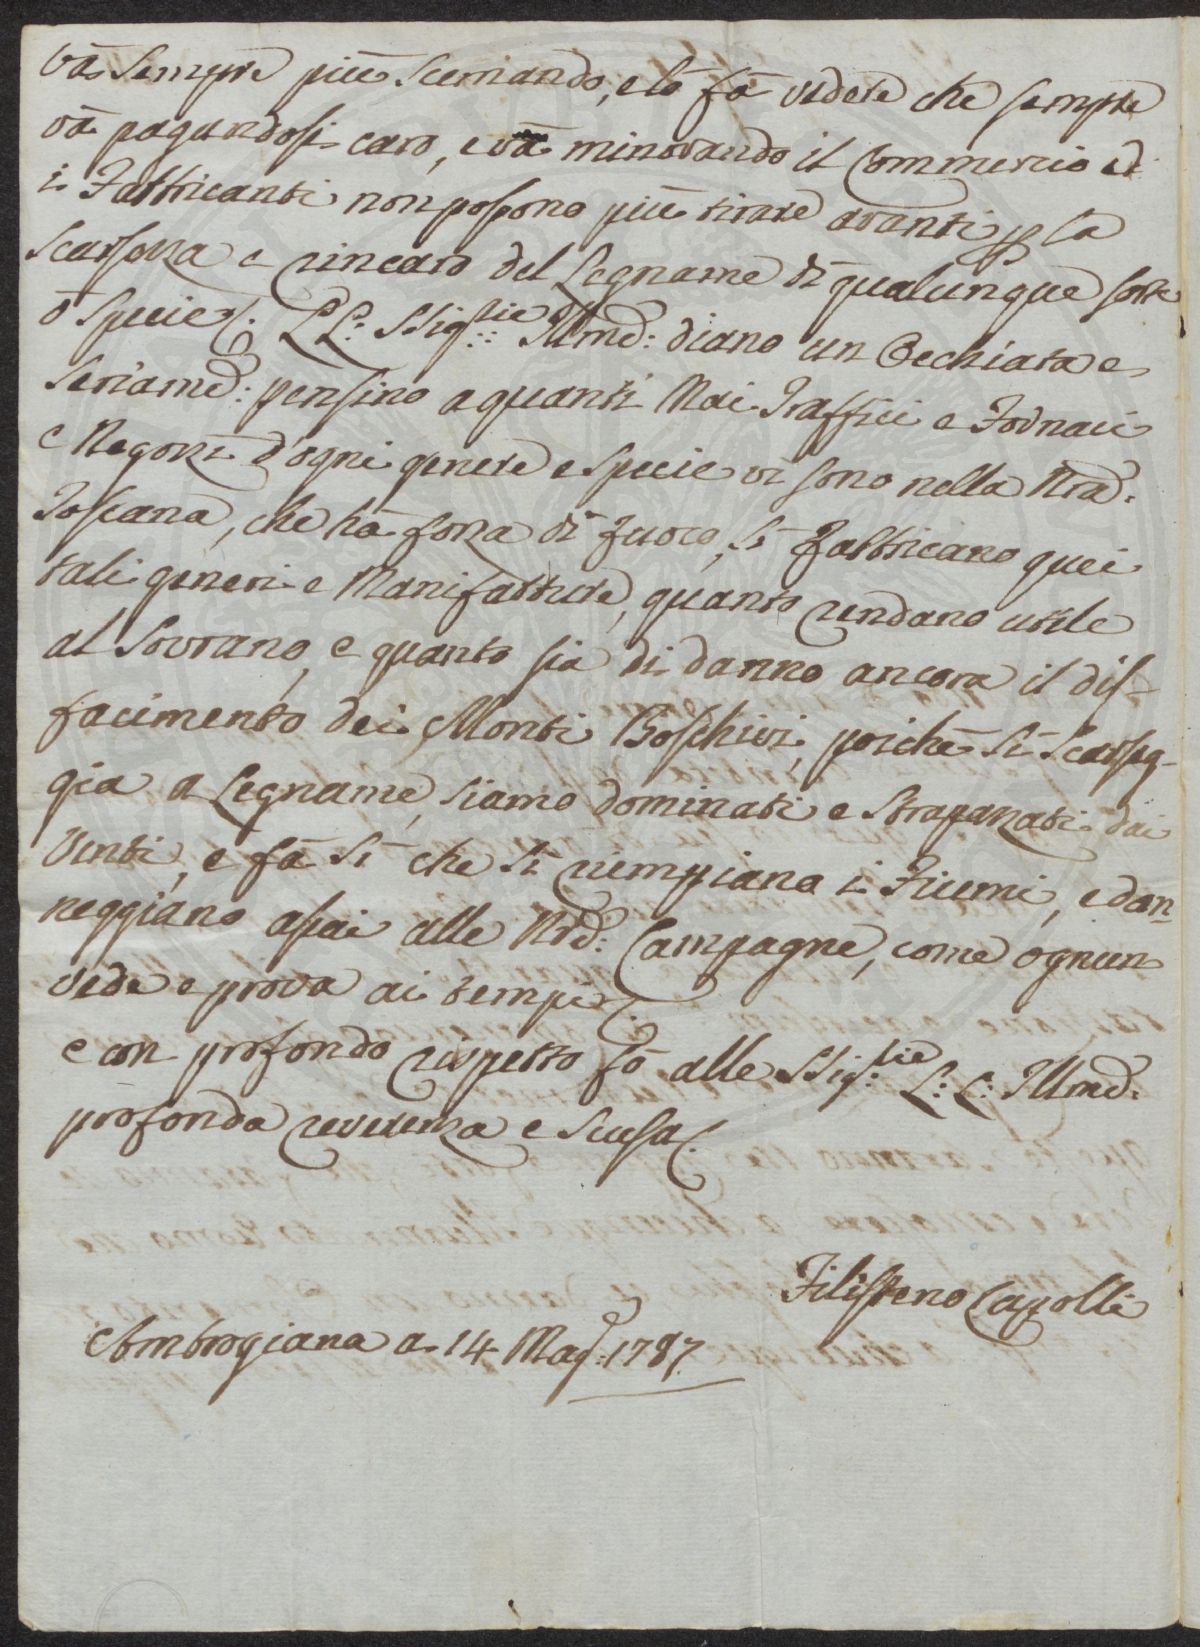 và sempre più scemando, e lo fà vedere che sempre
và pagandosi caro, e và minorando il Commercio ed
i Fabbricanti non possono più tirare avanti p la
scarsezza e rincaro del Legname di qualunque sorte
ò specie. LL: SSig:rie Illme: diano un Occhiata e
seriame: pensino a quanti Mai Traffici e Fornaci
e Negozi d'ogni genere e specie vi sono nella Nra:
Toscana, che hà forza di fuoco, si fabbricano quei
tali generi e Manifatture, quanto rendano utile
al Sovrano, e quanto sia di danno ancora il dis-
facimento dei Monti Boschivi, poichè si scarseg-
gia a Legname, siamo dominati e strapazzati dai
Venti, e fà sì che si riempiano i Fiumi, e dan-
neggiano assai alle Nre: Campagne, come ognun
vede e prova ai tempi.
e con profondo rispetto fò alle SSig:rie L: L: Illme:
profonda reverenza e scusa.
Filisteno
Ambrogiana a 14 Mag: 1787.